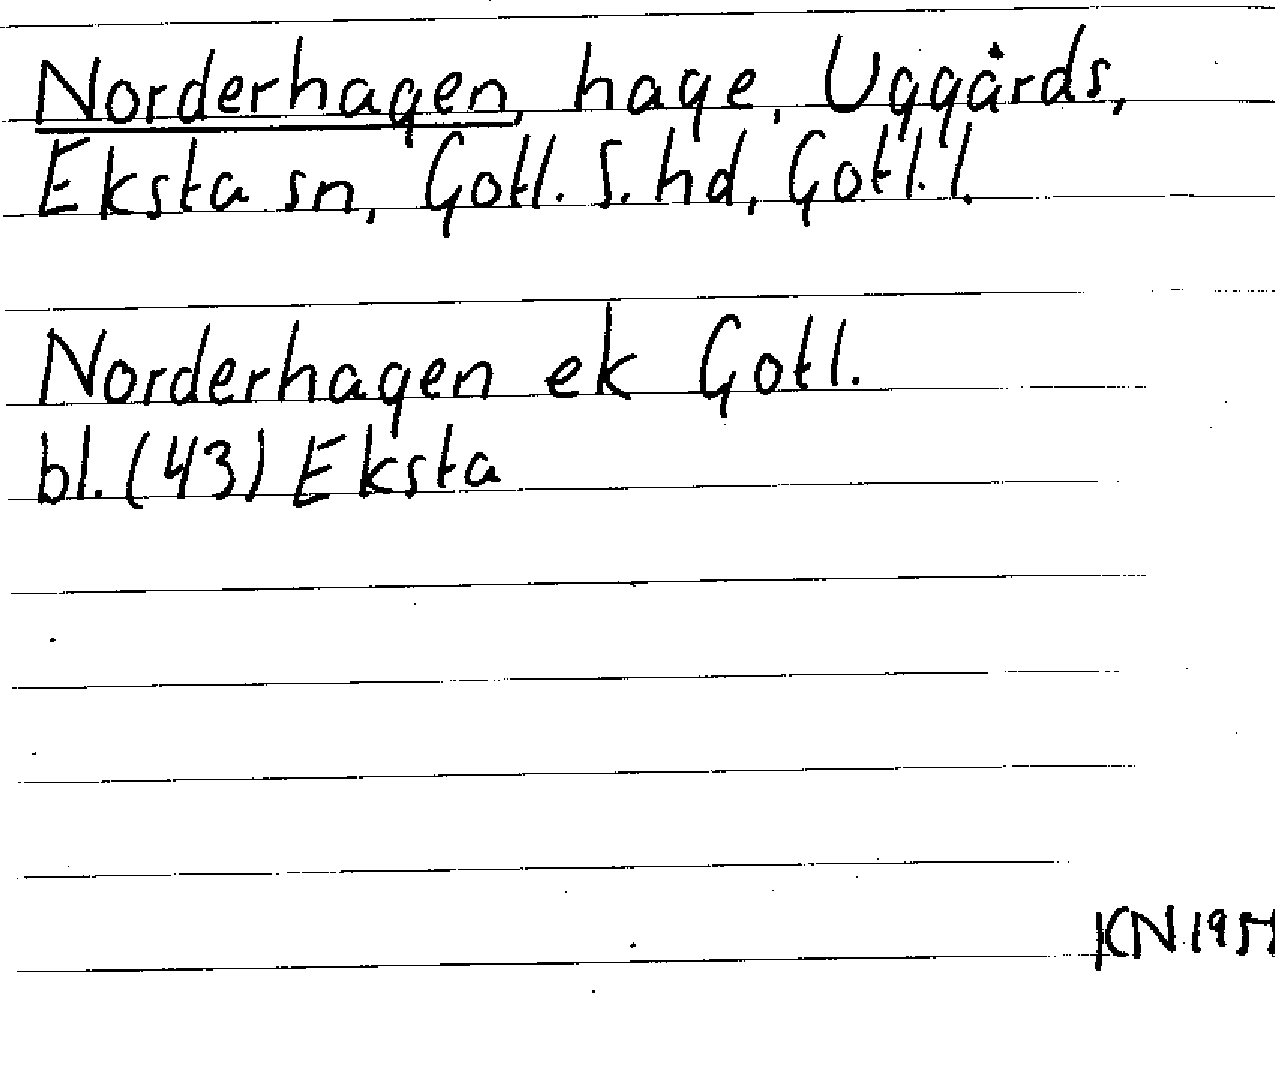 Norderhagen, hage, Uggårds,
Eksta sn, Gotl. S. hd, Gotl. l.
Norderhagen ek Gotl.
bl. (43) Eksta
KN